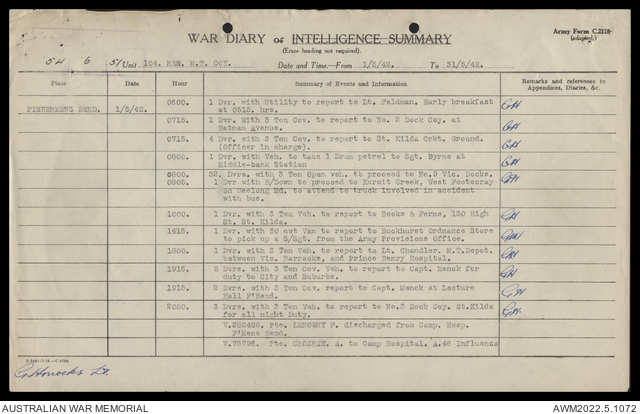 WAR DIARY or INTELLIGENCE SUMMARY
(Erase heading not required).
Army Form C.2118
(adapted.)
54 6 5/ Unit 104. RES. M.T. COY. Date and Time.—From 1/5/42. To 31/5/42.
Place Date Hour Summary of Events and Information Remarks and references to Appendices, Diaries, &c.
FISHERMENS BEND. 1/5/42. 0600. 1 Dvr. with Utility to report to Lt. Feldman. Early breakfast
at 0515. hrs. GH
0715. 1 Dvr. With 3 Ton Cov. to report to No. 2 Dock Coy. at
Batman Avenue. GH
0715. 4 Dvr. with 3 Ton Cov. to report to St. Kilda Crkt. Ground.
(Officer in charge). GH
0800. 1 Dvr. with Veh. to take 1 Drum petrol to Sgt. Byrne at
Middle-bank Station GH
0800. 32. Dvrs. with 3 Ton Open veh. to proceed to No.9 Vic. Docks.
0805. 1 Dvr with B/Down to proceed to Koroit Creek, West Footscray GH
on Geelong Rd. to attend to truck involved in accident
with bus.
1000. 1 Dvr. with 3 Ton Veh. to report to Books & Forms, 130 High
St. St. Kilda. GH
1415. 1 Dvr. with 30 cwt Van to report to Buckhurst Ordnance Store
to pick up a S/Sgt. from the Army Provisions Office. GH
1800. 1 Dvr. with 3 Ton Veh. to report to Lt. Chandler, M.T.Depot.
between Vic. Barracks, and Prince Henry Hospital. GH
1915. 2 Dvrs. with 3 Ton Cov. Veh. to report to Capt. Menck for
duty to City and Suburbs. GH
1915. 2 Dvrs. with 3 Ton Cov. report to Capt. Menck at Lecture
Hall F'Bend. GH
2000. 3 Dvrs. with 3 Ton Veh. to report to No.3 Dock Coy. St.Kilda
for all night Duty. GH
Pte. F. discharged from Camp. Hosp.
F'Mens Bend.
V.75796. Pte. A. to Camp Hospital. A.46 Influenza
Lt.
AUSTRALIAN WAR MEMORIAL AWM2022.5.1072